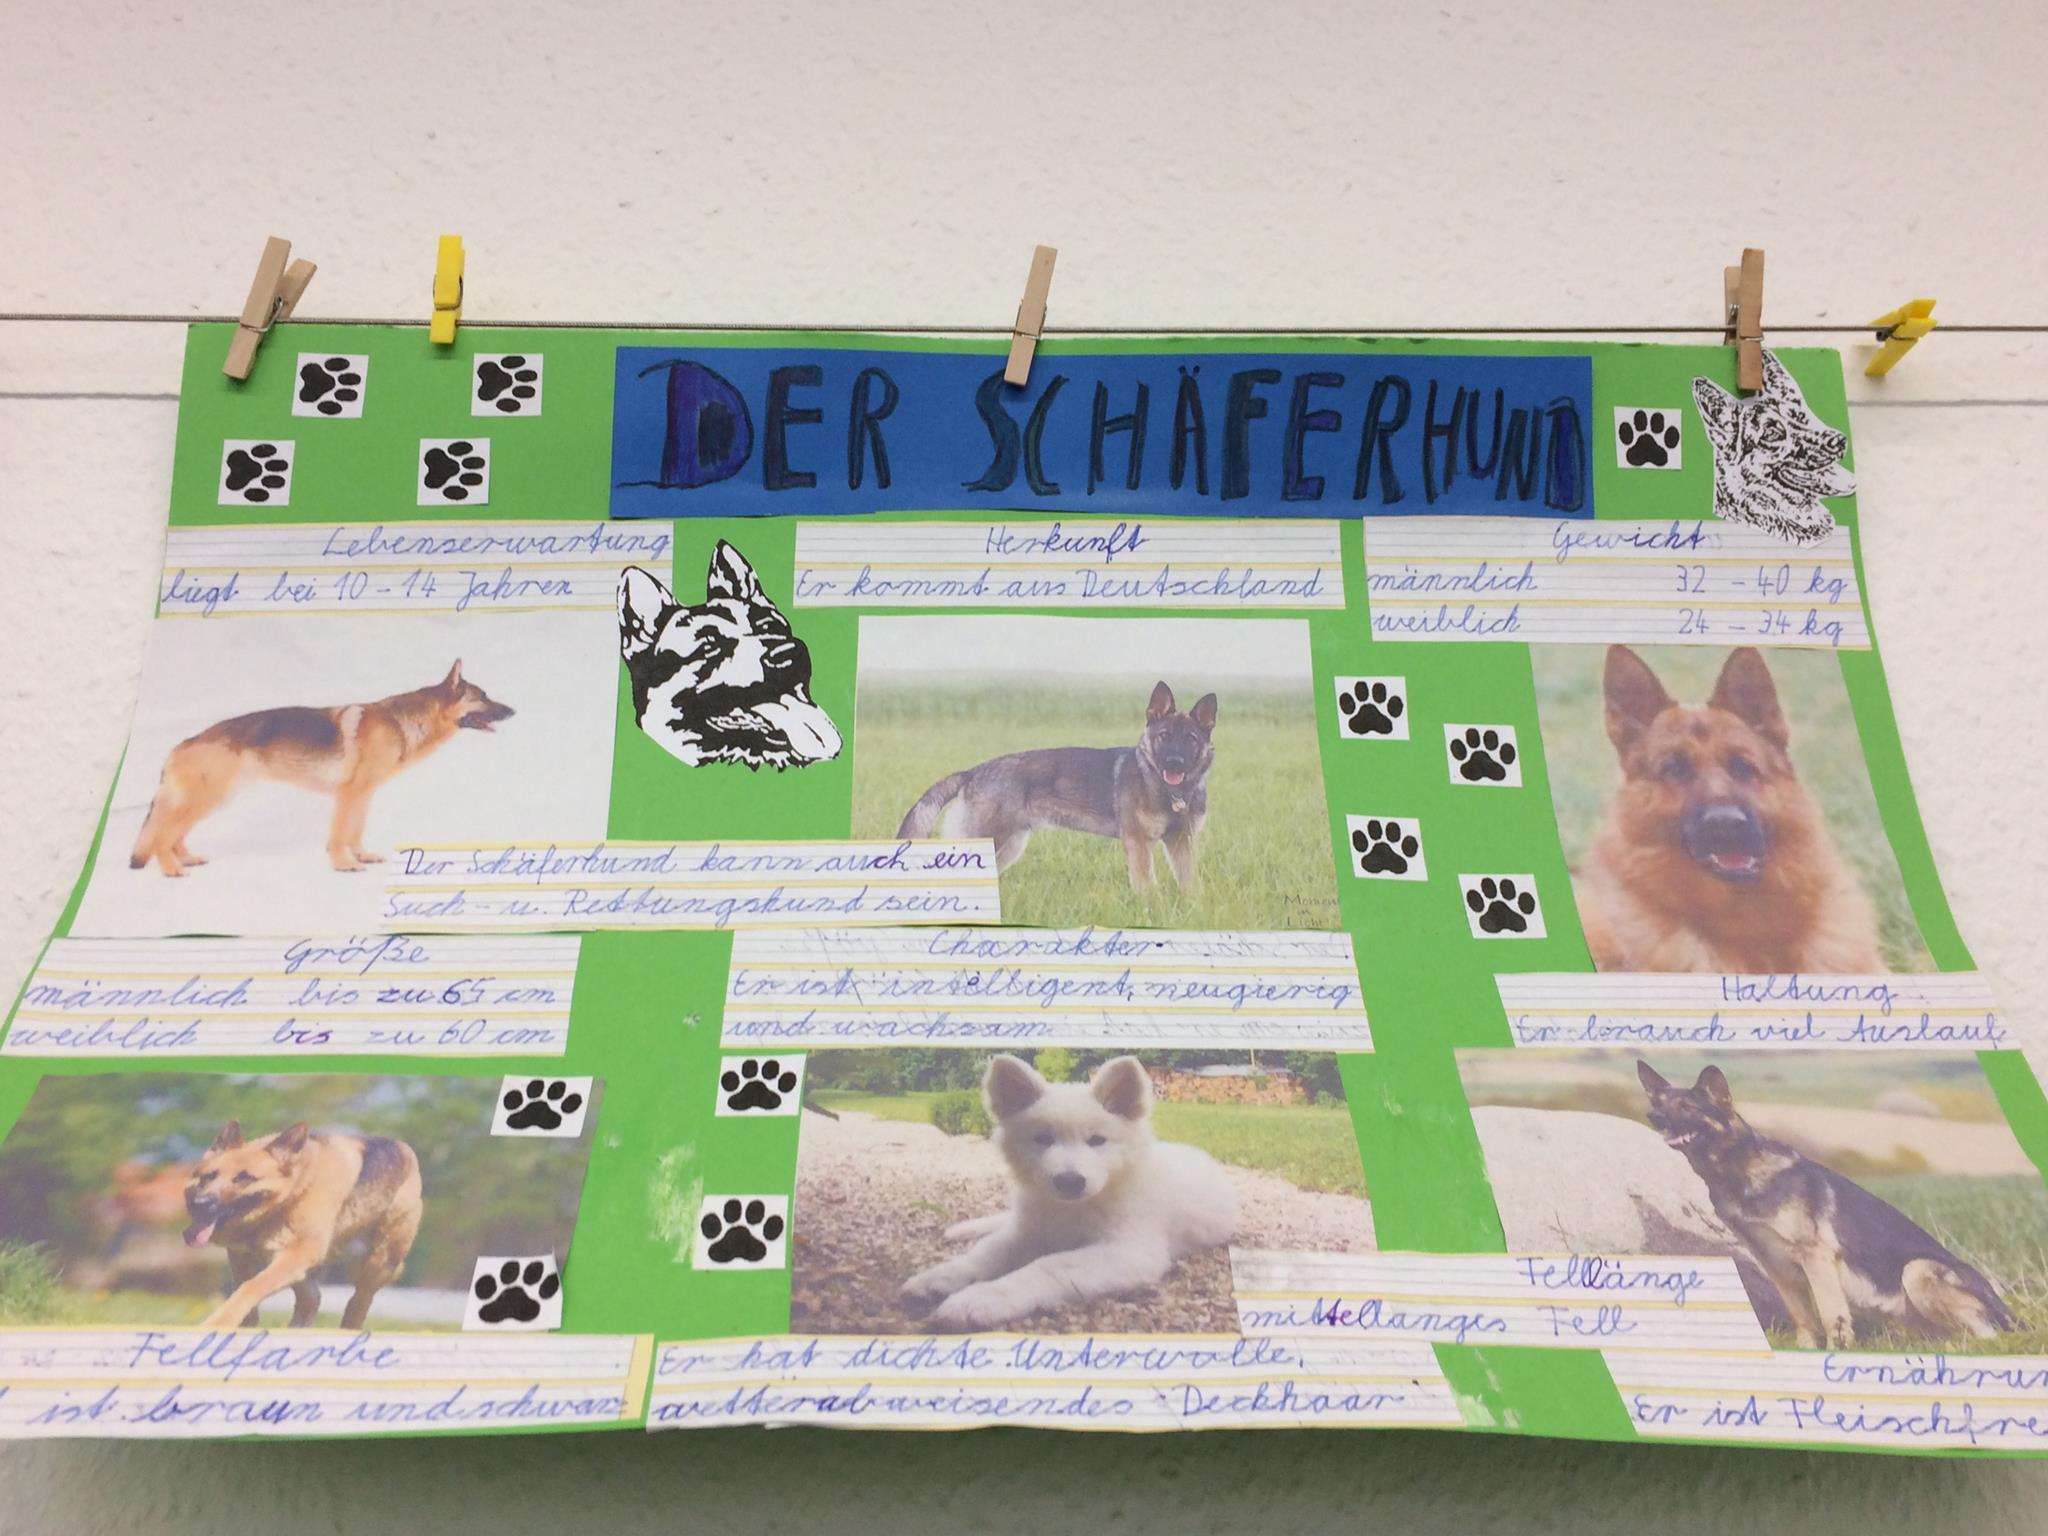 DER SCHÄFERHUND
Lebenserwartung
liegt bei 10 - 14 Jahren
Herkunft
Er kommt aus Deutschland
Gewicht
männlich 32 - 40 kg
weiblich 24 - 34 kg
Der Schäferhund kann auch ein
Such- u. Rettungshund sein.
Moment
in
Licht
Größe
männlich bis zu 65 cm
weiblich bis zu 60 cm
Charakter
Er ist intelligent, neugierig
und wachsam
Haltung
Er brauch viel Auslauf
Fellfarbe
ist braun und schwarz
Felllänge
mittellanges Fell
Er hat dichte Unterwolle,
wetterabweisendes Deckhaar
Ernährun
Er ist Fleischfre